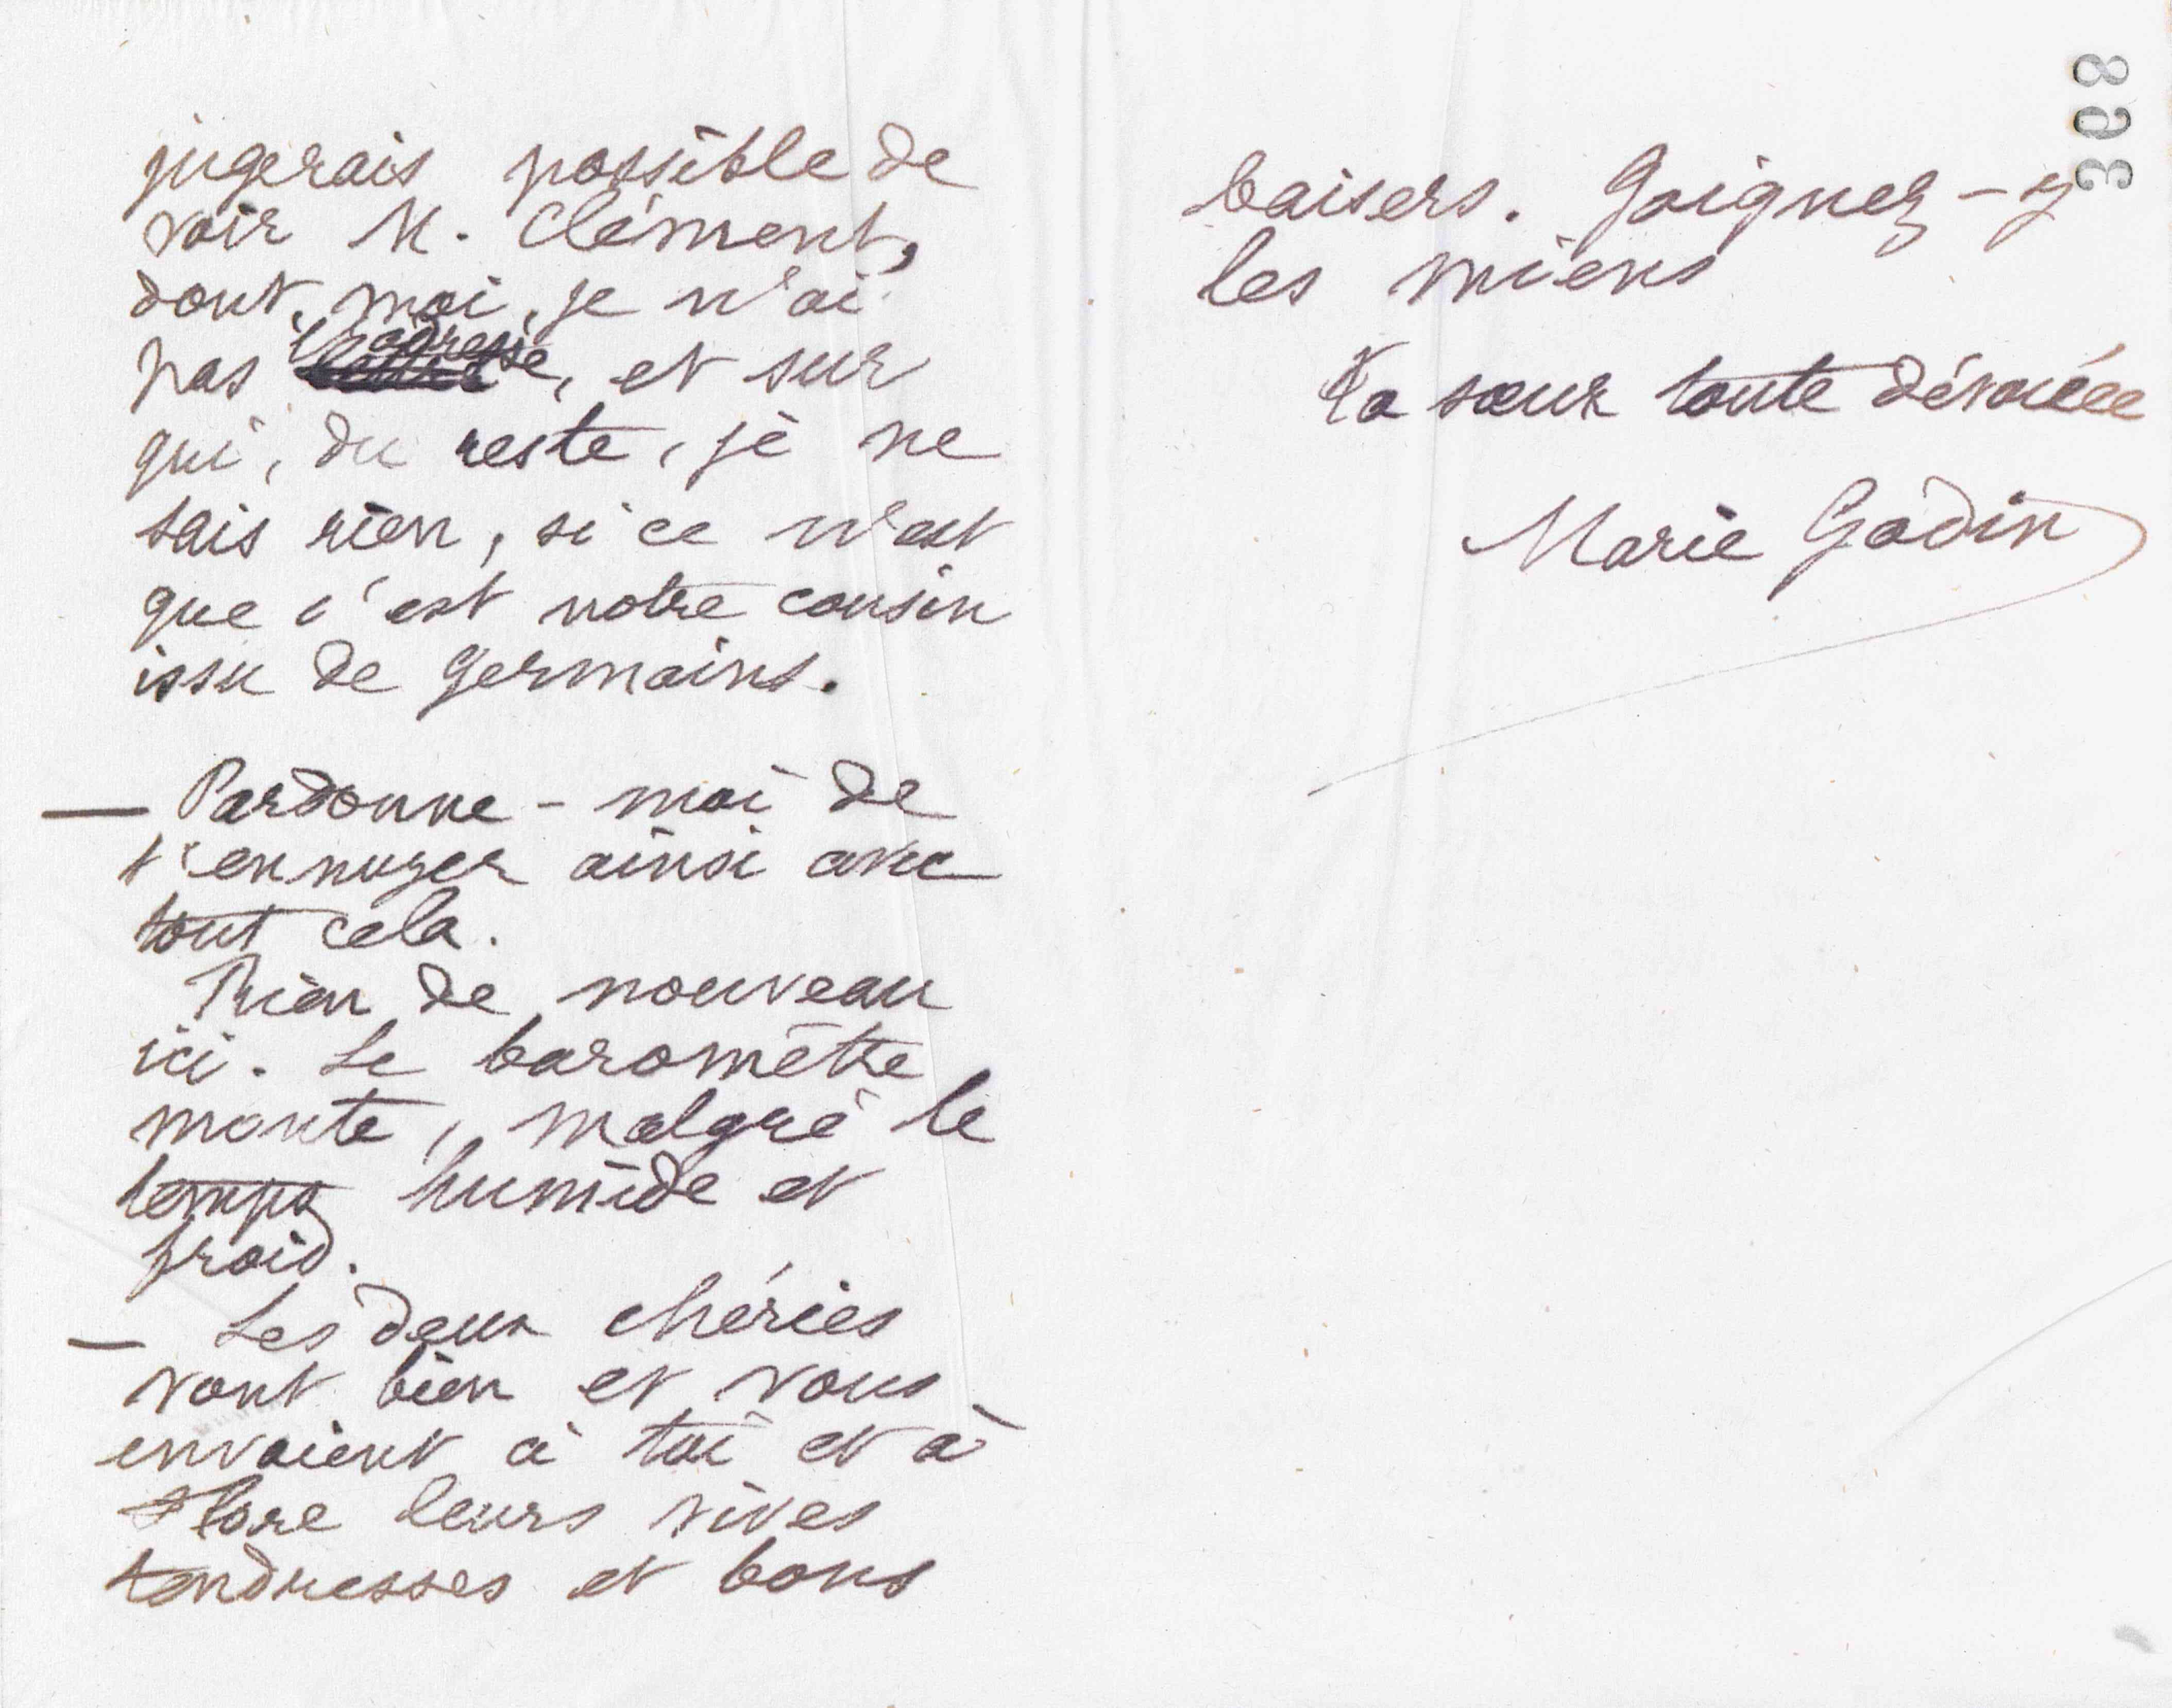 jugerais possible de
voir M. Clément,
dont, moi, je n'ai
pas l'adresse, et sur
qui, du reste, je ne
sais rien, si ce n'est
que c'est notre cousin
issu de germains.
— Pardonne-moi de
t'ennuyer ainsi avec
tout cela.
Rien de nouveau
ici. Le baromètre
monte, malgré le
temps humide et
froid.
— Les deux chéries
vont bien et vous
envoient à toi et à
Flore leurs vives
tendresses et bons
baisers. Joignez-y
les miens
Ta sœur toute dévouée
Marie Godin
398